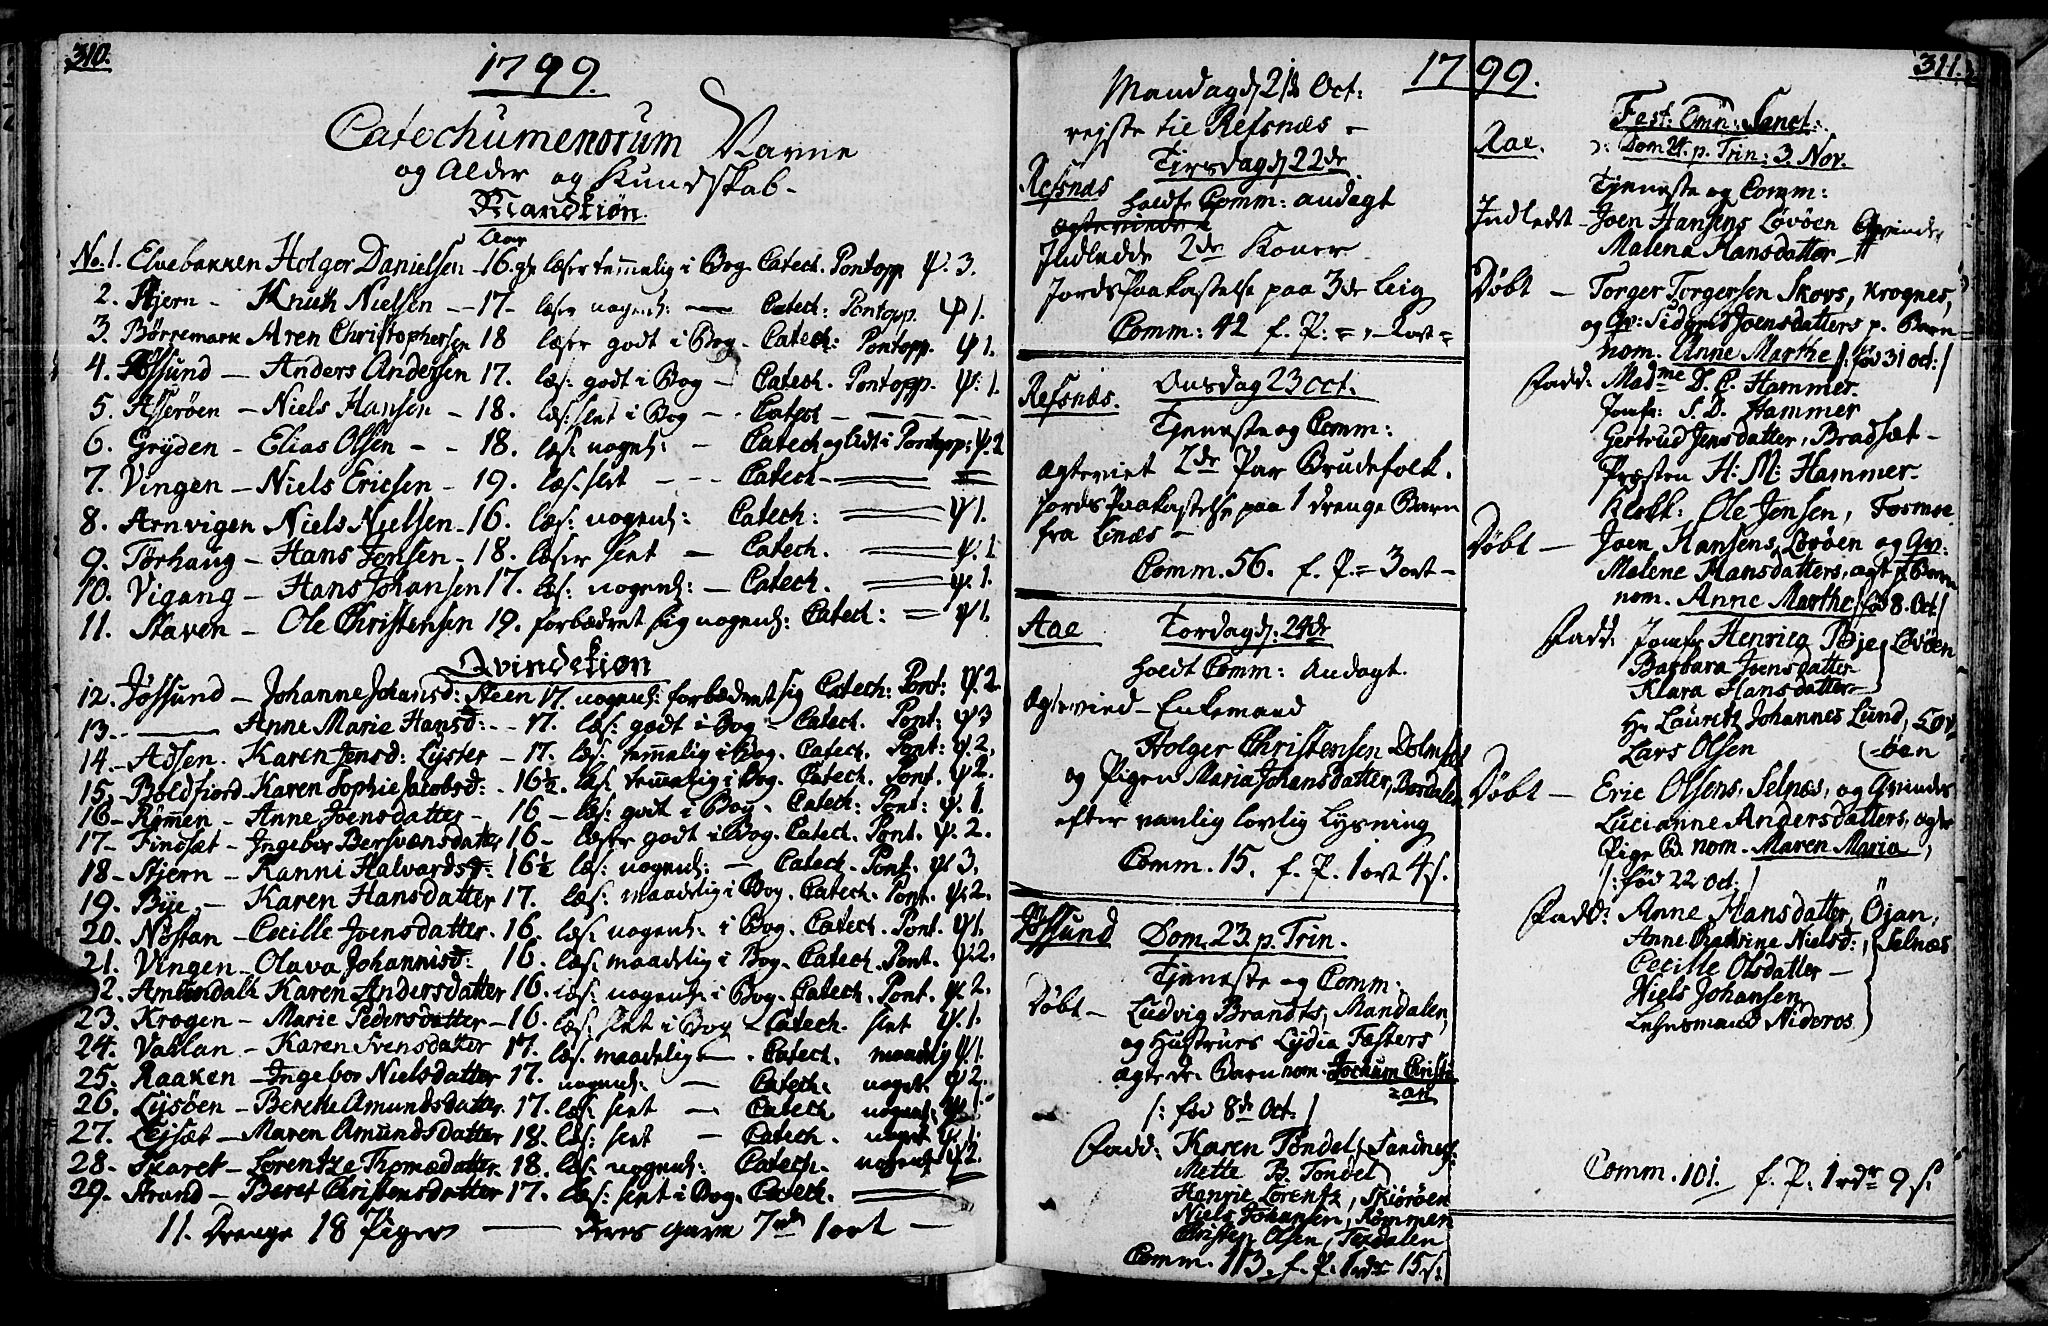 310.
1799.
Catechumenorum Navne
og Alder og Kundskab.
Mandkiøn.
Aar
No. 1. Elvebakken Holger Danielsen 16. læser temmelig i Bog. Catech. Pontopp. ψ. 3.
2. Stjern - Knuth Nielsen - 17 - læser nogenl: - Catech: Pontopp. ψ 1.
3. Børremark Aren Christophersen 18 læser godt i Bog. Catech: Pontopp. ψ 1.
4. Jøssund - Anders Andersen 17. læs: godt i Bog - Catech. Pontopp. ψ: 1.
5. Asserøen - Niels Hansen - 18. læs: slet i Bog - Catech -
6. Gryden - Elias Olsen - - 18. læs. nogenl: - Catech og lidt i Pontopp: ψ. 2
7. Vingen - Niels Ericsen - 19. læs. slet - - - Catech -
8. Arnvigen Niels Nielsen - 16. læs: nogenl: Catech: ψ 1.
9. Tørhaug - Hans Jensen - 18. læser slet - Catech. ψ. 1
10. Vigang - Hans Johansen 17. læs: nogenl: - Catech. ψ. 1.
11. Staven - Ole Christensen 19. forbædret sig nogenl: Catech: ψ 1.
Qvindekiøn
12. Jøssund - Johanne Johansd: Steen 17. nogenl: forbædret sig Catech: Pont: ψ. 2
13. - Anne Marie Hansd: - - 17. læs: godt i Bog - Catech. Pont: ψ 3
14. - Adsen. Karen Jensd: Lyster - 17. læs. temmelig i Bog. Catech. Pont: ψ 2.
15. Boldfiord - Karen Sophie Jacobsd: - 16½. læs. temmelig i Bog. Catech. Pont. ψ 2.
16 - Rømmen - Anne Joensdatter - 16 - læs: godt i Bog. Catech: Pont: ψ. 1.
17 - Findsæt - Ingebor Bersvensdatter 16 - læser godt i Bog. Catech. Pont. ψ. 2.
18 - Stjern - Ranni Halvardsd: 16½ læs: nogenl: - Catech. Pont. ψ 3.
19. Bye, - Karen Hansdatter 17. læs: maadelig i Bog. Catech. Pont. ψ. 2.
20. Nøstan - Cecille Joensdatter. 16. læs. nogenl: i Bog. Catech. Pont. ψ 1.
21. Vingen - Olava Johannisd: 16. læs. maadelig i Bog. Catech. Pont. ψ. 2.
22. Amundal Karen Andersdatter 16. læs: nogenl: i Bog. Catech. Pont. ψ 2.
23. Krogen - Marie Pedersdatter - 16. læs: slet i Bog - Catech. slet ψ. 1.
24. Vallan - Karen Svensdatter 17. læs. maadelig - Catech. maadelig ψ. 1.
25. Raaken - Ingebor Nielsdatter 17. nogenl: - Catech. noget ψ 2.
26. Lysøen - Berethe Amundsdatter. 17. læs: slet - Catech nogenl:
27. Lejsæt - Maren Amundsdatter 18. læs: slet - Catech. noget ψ. 1.
28. Skaret - Lorentze Thomædatter. 18. læs. nogenl: Catech. nogenl: ψ 2.
29. Strand - Beret Christensdatter 17. læs: slet i Bog. Catech.
11. Drenge 18 Piger - deres gave 7 rd 1 ort -
311.
1799.
Mandag d. 21de Oct:
rejste til Refsnæs -
Refsnæs Tirsdag d. 22de
holdt Comm: andagt
Indledde 2de Koner
Jords Paakastelse paa 3de Lig
Comm: 42 f. P:
Refsnæs. Onsdag 23 Oct.
Tjeneste og Comm:
ægteviet 2de Par Brudefolk.
Jords Paakastelse paa 1 drenge Barn
fra Linæs -
Comm. 56. f. P. = 3 ort -
Aae Torsdag d. 24de
holdt Comm: Andagt.
Ægtevied - Enkemand
Holger Christensen
og Pigen Maria Johansdatter, Dordalen
efter vanlig lovlig Lysning
Comm. 15. f. P. 1 ort 4 s.
Jøssund Dom. 23. p. Trin.
Tjeneste og Comm.
Døbt - Ludvig Brandts, Mandalen,
og Hustrues Lydia Fæsters
ægte dr. Barn nom. Jochum Christi
=an
/: fød 8de Oct: /
Fadd: Karen Tøndel,
Mette B. Tøndel
Henric Lorentz, Skiørøen
Niels Johansen, Rømmen
Christen Olsen, Terdalen
Comm. 113. f. P. 1 rdr 15 s.
Aae. Fest: Omn: Sanct:
ↄ: Dom 24. p. Trin: 3. Nov.
Tjeneste og Comm:
Indledt - Joen Hansens Løvøen Qvinde
Malena Hansdatter
Døbt - Torger Torgersen Skovs, Krognes,
og Qv: Sidgrid Joensdatters p. Barn
nom. Anne Marthe /: fød 31 Oct: /
Fadd: Madme D. C. Hammer.
Jomfr: S. D. Hammer
Gertrud Jensdatter, Bradsæt -
Præsten H: M: Hammer -
Klokk: Ole Jensen, Fosmoe
Døbt - Joen Hansens, Løvøen og Qv:
Malene Hansdatters, ægt p Barn
nom. Anne Marthe /: fød 8. Oct /
Fadd: Jomfr Henrica Bie, Løvøen
Barbara Joensdatter
Klara Hansdatter
Hr. Lauretz Johannes Lund, Løv
Lars Olsen -øen
Døbt - Eric Olsens, Selnæs, og Qvindes
Lucianne Andersdatters, ægte
Pige B. nom. Maren Maria,
/: fød 22 Oct. /
Fadd: Anne Hansdatter, Öjan,
Anne Nielsd:, Selnæs
Cecille Olsdatter -
Niels Johansen
Lehnsmand Nideros
Comm. 101. f. P. 1 rdr 9 s.